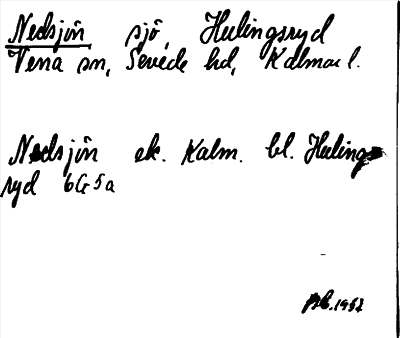 Nedsjön sjö, Hulingsryd
Vena sn, Sevede hd, Kalmar l.
Nedsjön ek. Kalm. bl. Hulings-
ryd 6G5a
1957